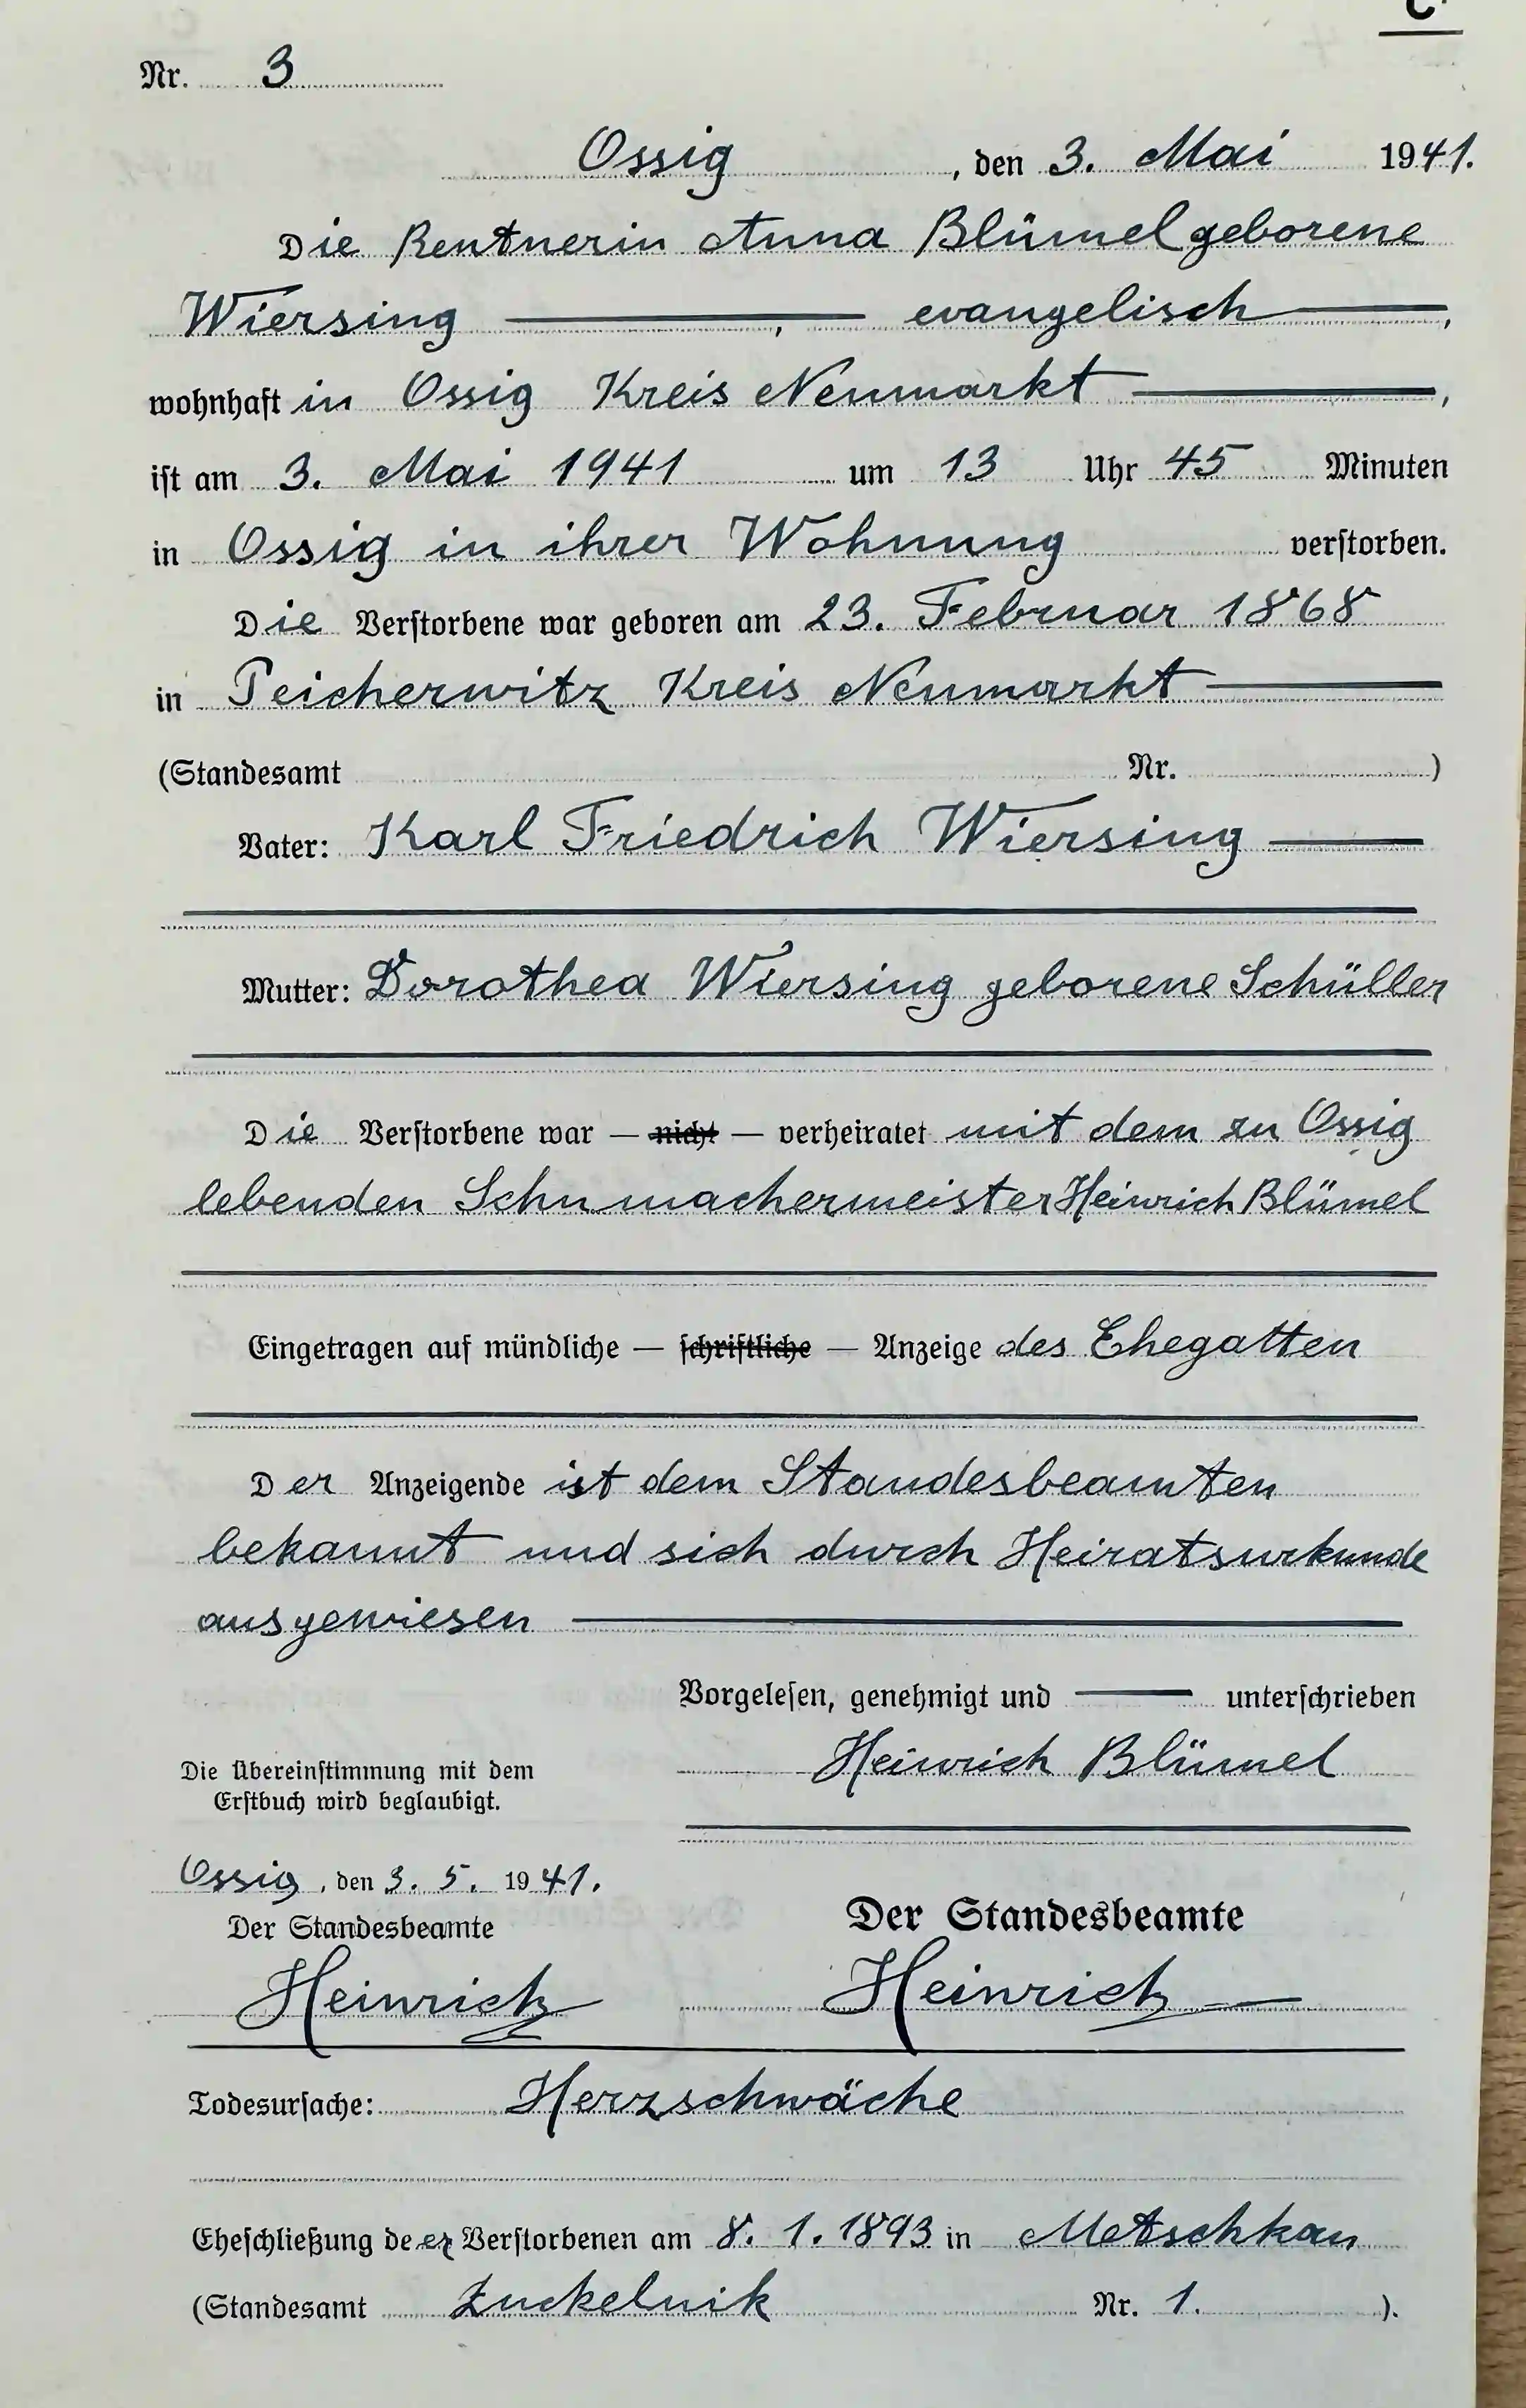 C.
Nr. 3
Ossig, den 3. Mai 1941.
Die Rentnerin Anna Blümel geborene
Wiersing —, — evangelisch —,
wohnhaft in Ossig Kreis Neumarkt —,
ist am 3. Mai 1941 um 13 Uhr 45 Minuten
in Ossig in ihrer Wohnung verstorben.
Die Verstorbene war geboren am 23. Februar 1868
in Peicherwitz Kreis Neumarkt —
(Standesamt Nr. )
Vater: Karl Friedrich Wiersing —
Mutter: Dorothea Wiersing geborene Schüller
Die Verstorbene war — nicht — verheiratet mit dem zu Ossig
lebenden Schumachermeister Heinrich Blümel
Eingetragen auf mündliche — schriftliche — Anzeige des Ehegatten
Der Anzeigende ist dem Standesbeamten
bekannt und sich durch Heiratsurkunde
ausgewiesen —
Vorgelesen, genehmigt und — unterschrieben
Heinrich Blümel
Die Übereinstimmung mit dem
Erstbuch wird beglaubigt.
Ossig, den 3. 5. 1941.
Der Standesbeamte
Heinrich
Der Standesbeamte
Heinrich
Todesursache: Herzschwäche
Eheschließung de er Verstorbenen am 8. 1. 1893 in Metschkau
(Standesamt Zuckelnik Nr. 1. ).